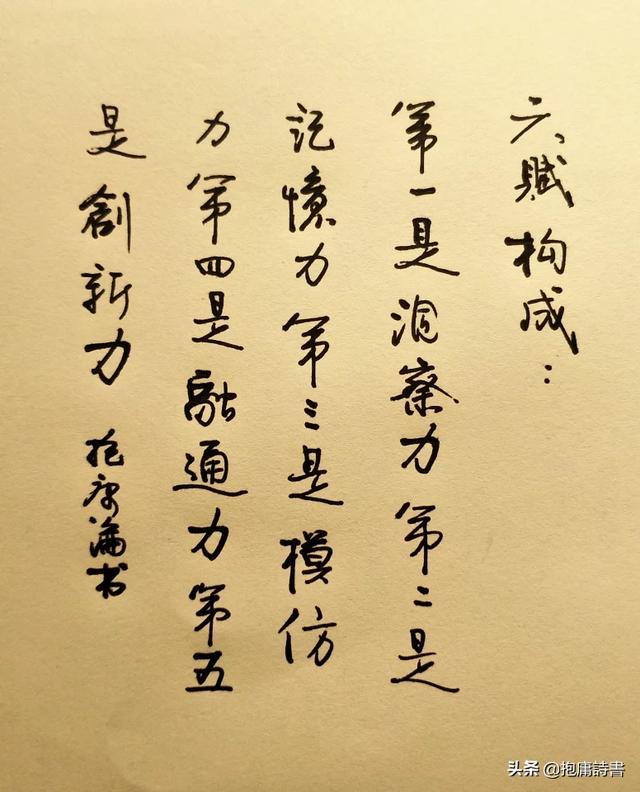 天賦构成：
第一是洞察力第二是
記憶力第三是模仿
力第四是融通力第五
是創新力 抱庸书
头条 @抱庸詩書